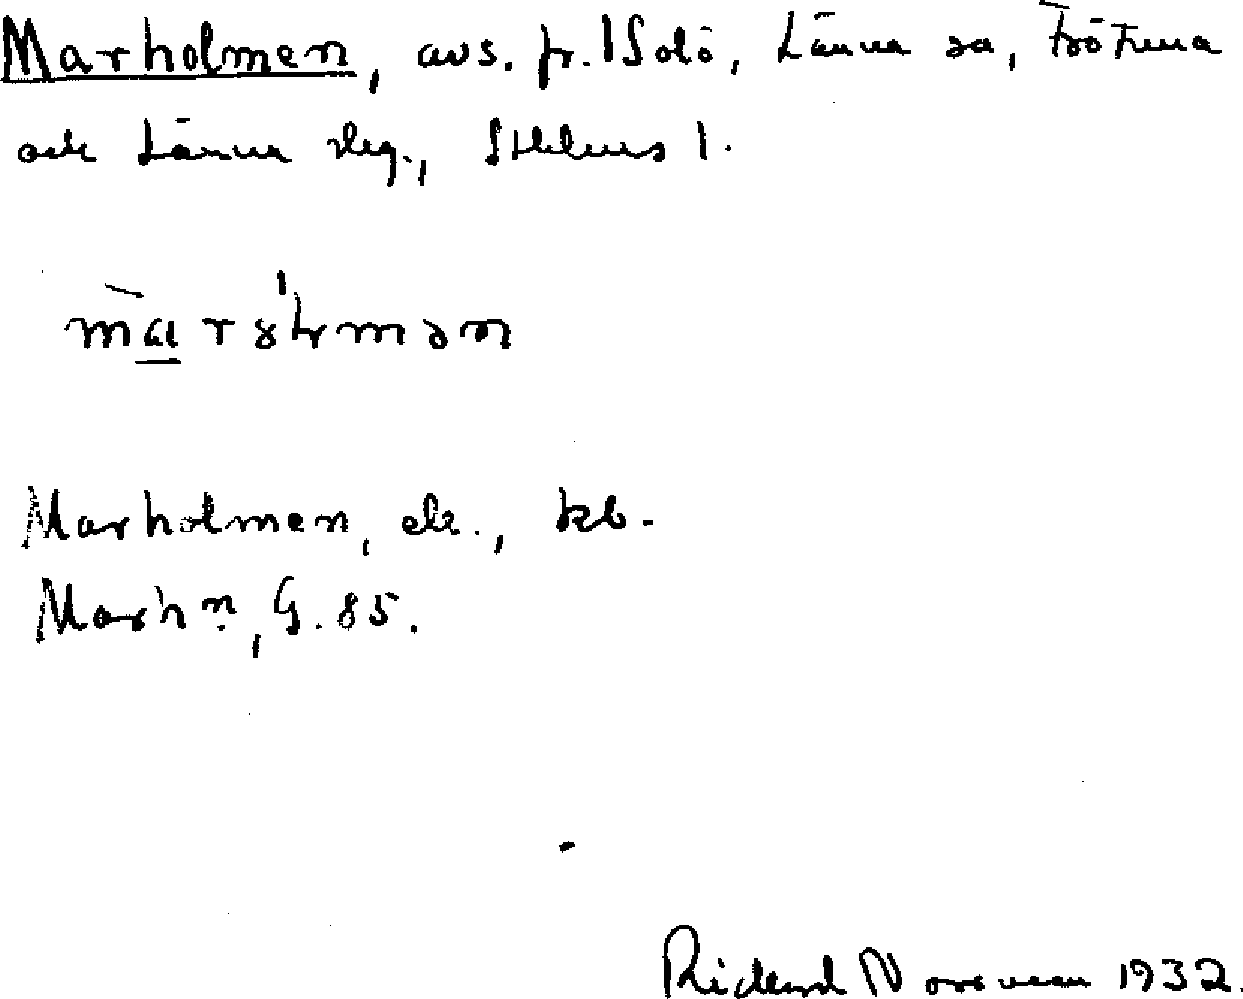 Marholmen, avs. fr. 1 Solö, Länna sn, Frötuna
och Länna slg., Sthlms l.
Marholmen, ek., kb.
Marhn., G. 85.
Rickard Norsman 1932.